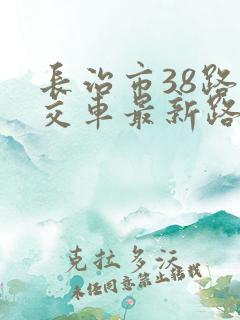 長治市38路
交車最新路
克拉多沃
未经同意禁止转载